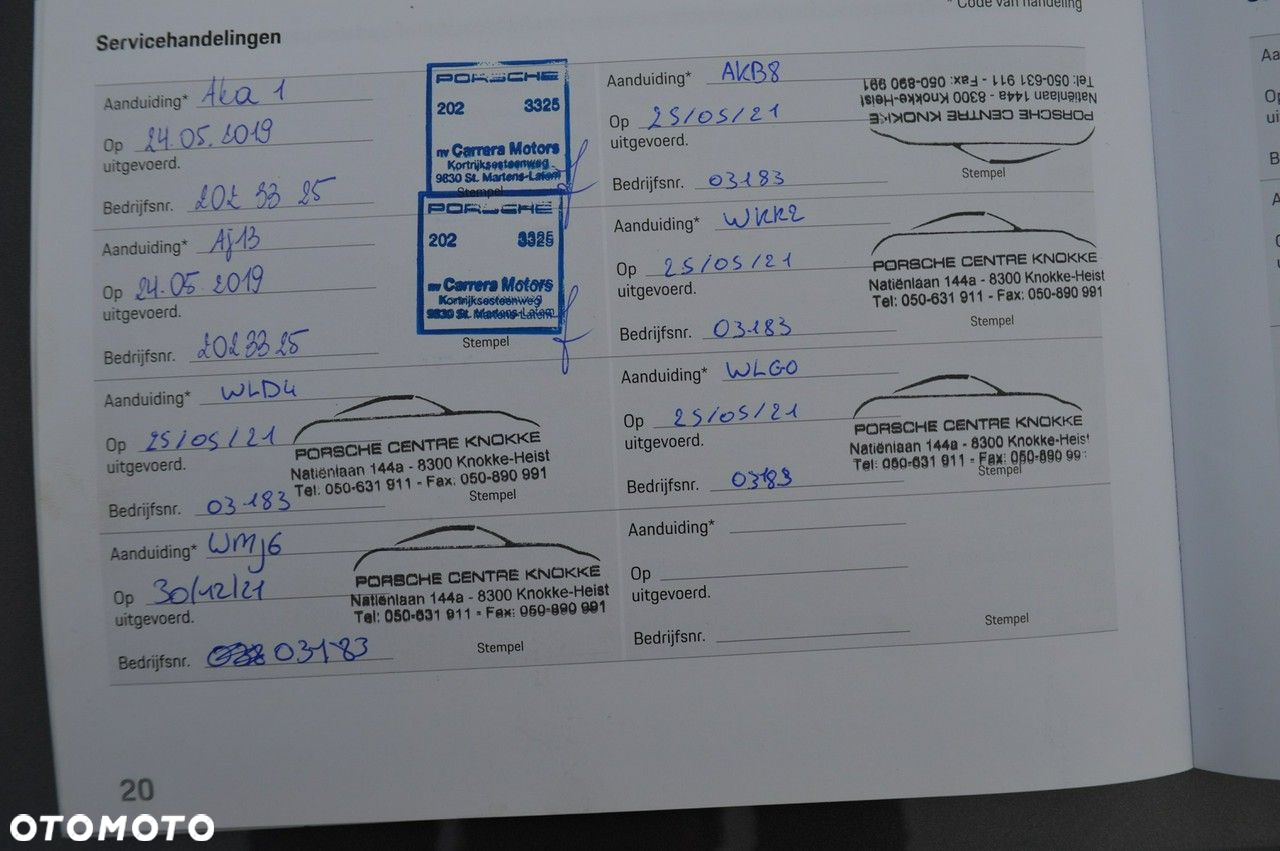 * Code van handeling
Servicehandelingen
Aanduiding* Aka 1
Op 24.05.2019
uitgevoerd.
Bedrijfsnr. 202 33 25
PORSCHE
202 3325
nv Carrera Motors
Kortrijksesteenweg
9830 St. Martens-Latem
Stempel
Aanduiding* Aj13
Op 24.05.2019
uitgevoerd.
Bedrijfsnr. 2023325
PORSCHE
202 3325
nv Carrera Motors
Kortrijksesteenweg
9830 St. Martens-Latem
Stempel
Aanduiding* WLD4
Op 25/05/21
uitgevoerd.
Bedrijfsnr. 03183
PORSCHE CENTRE KNOKKE
Natiënlaan 144a - 8300 Knokke-Heist
Tel: 050-631 911 - Fax: 050-890 991
Stempel
Aanduiding* WMJ6
Op 30/12/21
uitgevoerd.
Bedrijfsnr. 03183
PORSCHE CENTRE KNOKKE
Natiënlaan 144a - 8300 Knokke-Heist
Tel: 050-631 911 - Fax: 050-890 991
Stempel
Aanduiding* AKB8
Op 25/05/21
uitgevoerd.
Bedrijfsnr. 03183
PORSCHE CENTRE KNOKKE
Natiënlaan 144a - 8300 Knokke-Heist
Tel: 050-631 911 - Fax: 050-890 991
Stempel
Aanduiding* WKR2
Op 25/05/21
uitgevoerd.
Bedrijfsnr. 03183
PORSCHE CENTRE KNOKKE
Natiënlaan 144a - 8300 Knokke-Heist
Tel: 050-631 911 - Fax: 050-890 991
Stempel
Aanduiding* WLG0
Op 25/05/21
uitgevoerd.
Bedrijfsnr. 03183
PORSCHE CENTRE KNOKKE
Natiënlaan 144a - 8300 Knokke-Heist
Tel: 050-631 911 - Fax: 050-890 99
Stempel
Aanduiding*
Op
uitgevoerd.
Bedrijfsnr.
Stempel
20
OTOMOTO